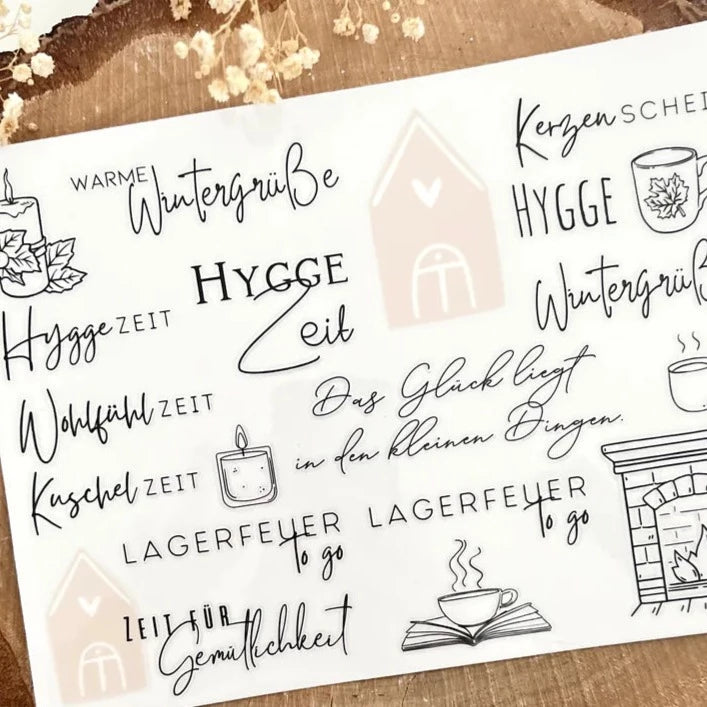 WARME Wintergrüße
KerzenSCHEI
HYGGE
HYGGE
Zeit
Wintergrüß
HyggeZEIT
WohlfühlZEIT
Das Glück liegt
in den kleinen Dingen.
KuschelZEIT
LAGERFEUER
to go
LAGERFEUER
to go
ZEIT FÜR
Gemütlichkeit